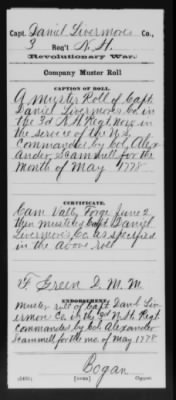 Capt. Daniel Livermore's Co.,
3 Reg't N.H.
Revolutionary War.
Company Muster Roll
CAPTION OF ROLL.
A Muster Roll of Capt.
Daniel Livermores Co. in
the 3d N.H. Regt. now in
the service of the U.S.
Commanded by Col. Alex-
ander Scammell for the
month of May 1778
CERTIFICATE.
Cam Vally Forge June 2
then mustered Capt. Daniel
Livermores Co. as specified
in the above roll
F Green D. M. M.
ENDORSEMENT.
Muster roll of Capt. Danl Liv-
ermon Co. in the 3d N.H. Regt
Commanded by Col. Alexander
Scammell for the mo. of May 1778
Bogan
Copyist.